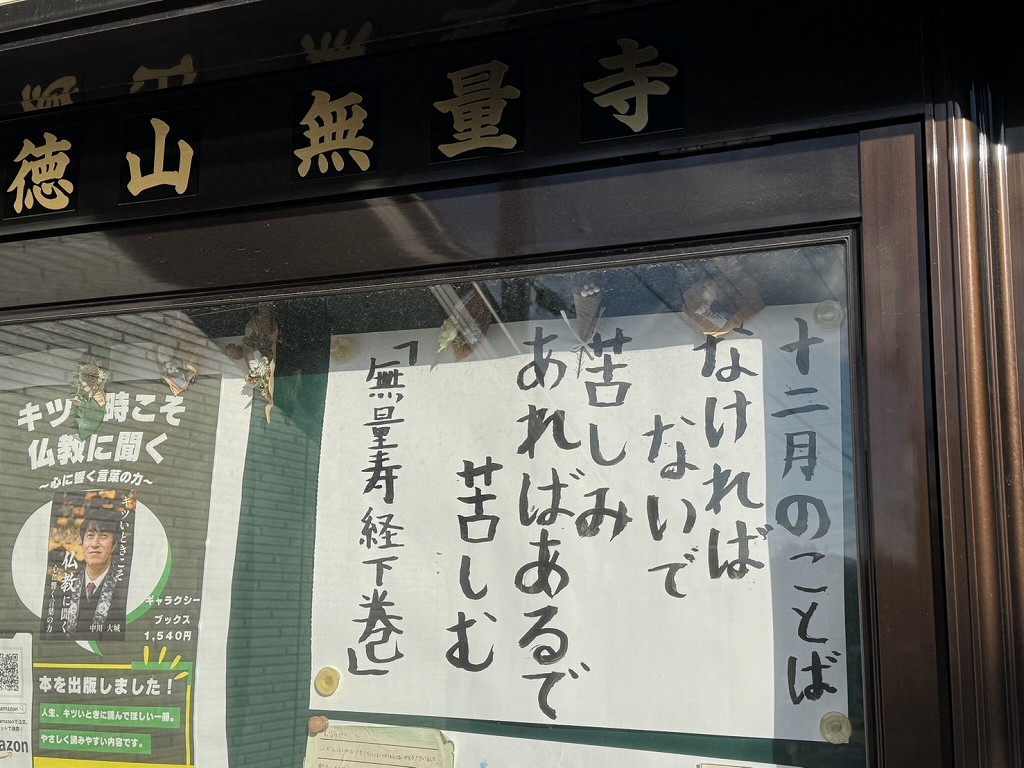 徳山無量寺
十二月のことば
なければ
ないで
苦しみ
あればあるで
苦しむ
「無量寿経下巻」
キツい時こそ
仏教に聞く
~心に響く言葉の力~
キツいときこそ
仏教に聞く
心に響く言葉の力
中川 大城
ギャラクシー
ブックス
1,540円
本を出版しました!
人生、キツいときに読んでほしい一冊。
やさしく読みやすい内容です。
amazon
amazon